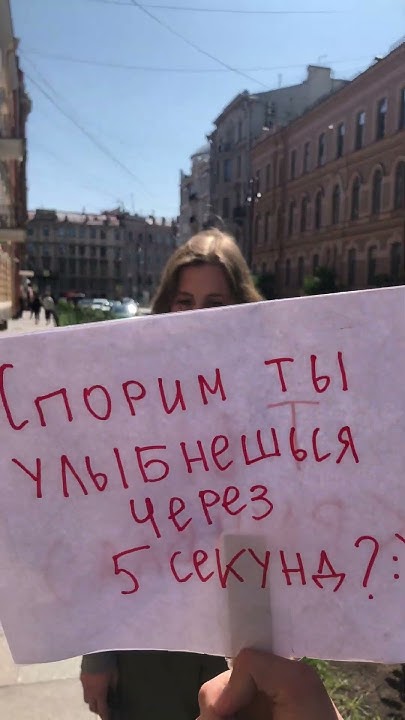 Спорим ты
улыбнешься
через
5 секунд?:)